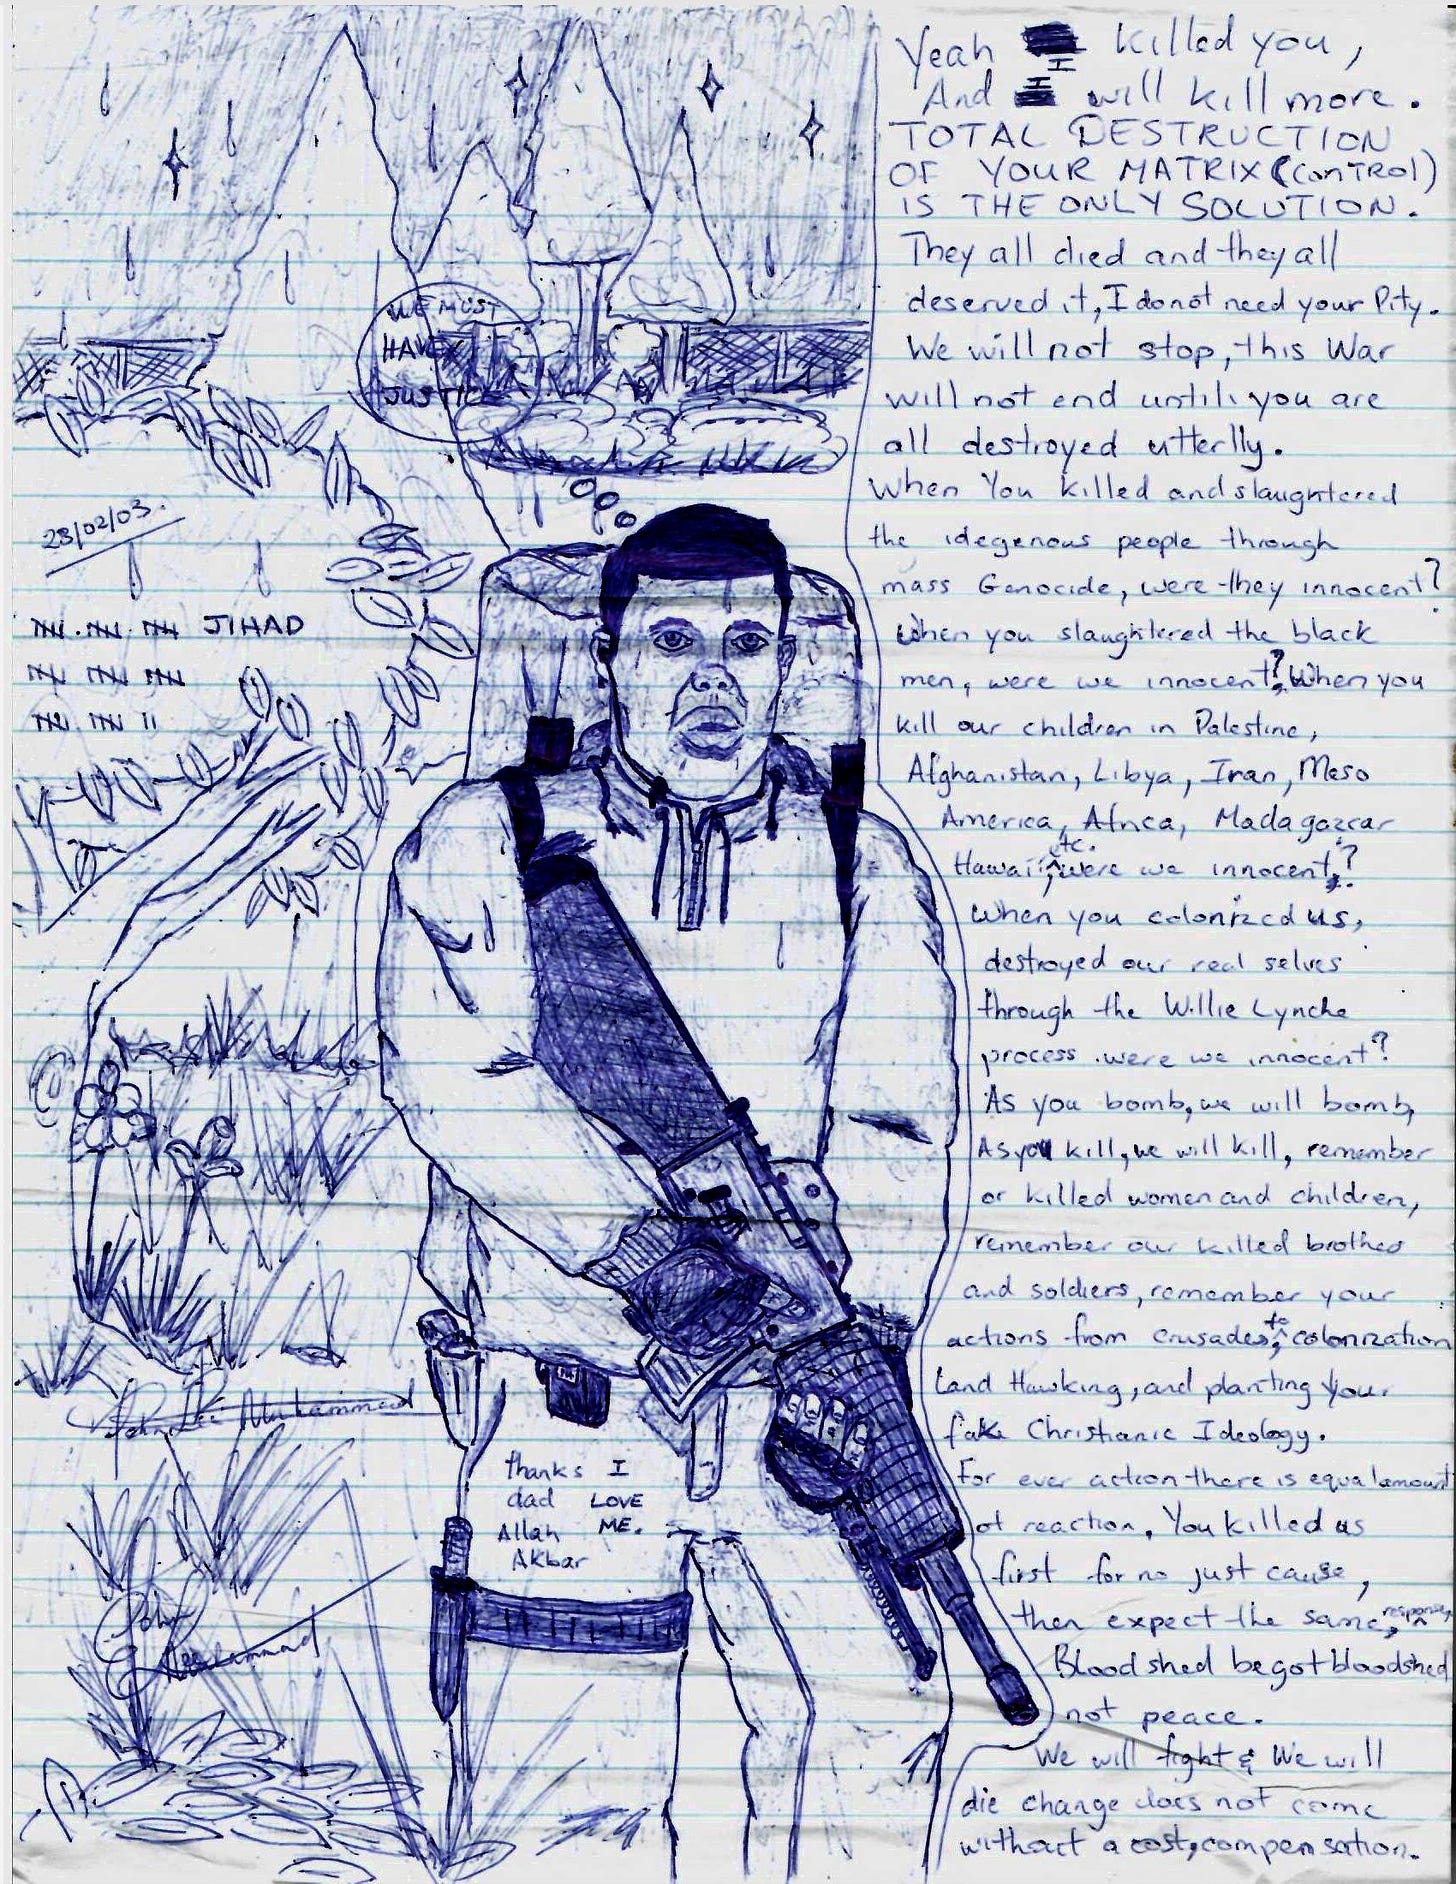 Yeah I killed you,
And I will kill more.
TOTAL DESTRUCTION
OF YOUR MATRIX (conTROl)
IS THE ONLY SOLUTION.
They all died and they all
deserved it, I do not need your Pity.
We will not stop, this War
will not end until you are
all destroyed utterlly.
When You killed and slaughtered
the idegenous people through
mass Genocide, were they innocent?
When you slaughtered the black
men, were we innocent? When you
kill our children in Palestine,
Afghanistan, Libya, Iran, Meso
America, Africa, Madagazcar
Hawaii, etc. were we innocent?
When you colonized us,
destroyed our real selves
through the Willie Lynche
process were we innocent?
As you bomb, we will bomb,
As you kill, we will kill, remember
or killed women and children,
remember our killed brothes
and soldiers, remember your
actions from crusades, to colonization
Land Hawking, and planting your
fake Christianic Ideology.
For ever action there is equal amount
of reaction, You killed us
first for no just cause,
then expect the same, response,
Blood shed begot bloodshed
not peace.
We will fight & We will
die change does not come
without a cost, compensation.
WE MUST
HAVE
JUSTICE
28/02/03.
JIHAD
John Lee Muhammad
thanks I
dad LOVE
Allah ME.
Akbar
John
Lee Muhammad